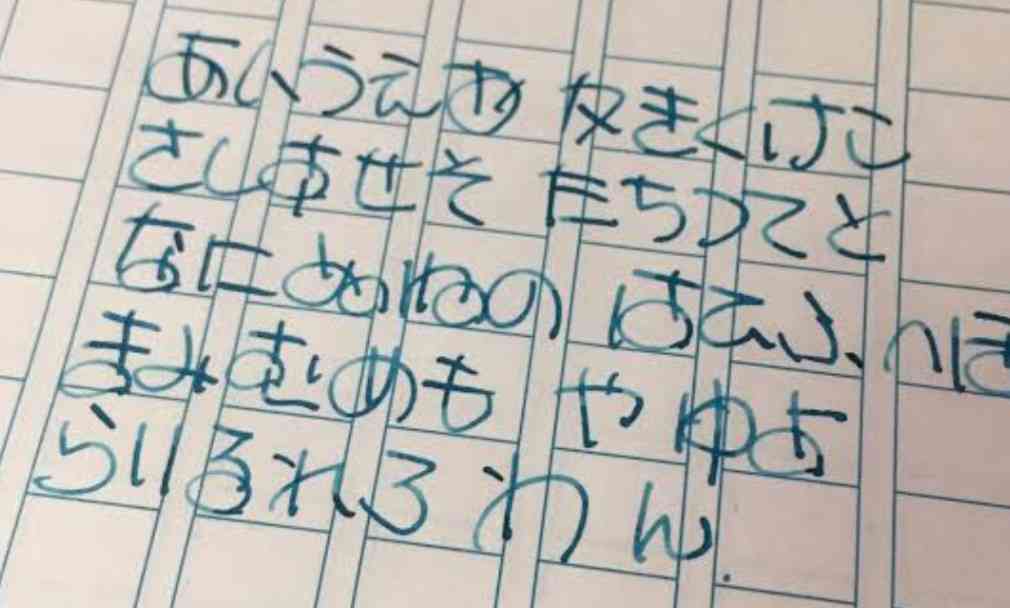 あいうえお かきくけこ
さしすせそ たちつてと
なにぬねの はひふへほ
まみむめも やゆよ
らりるれろ わん